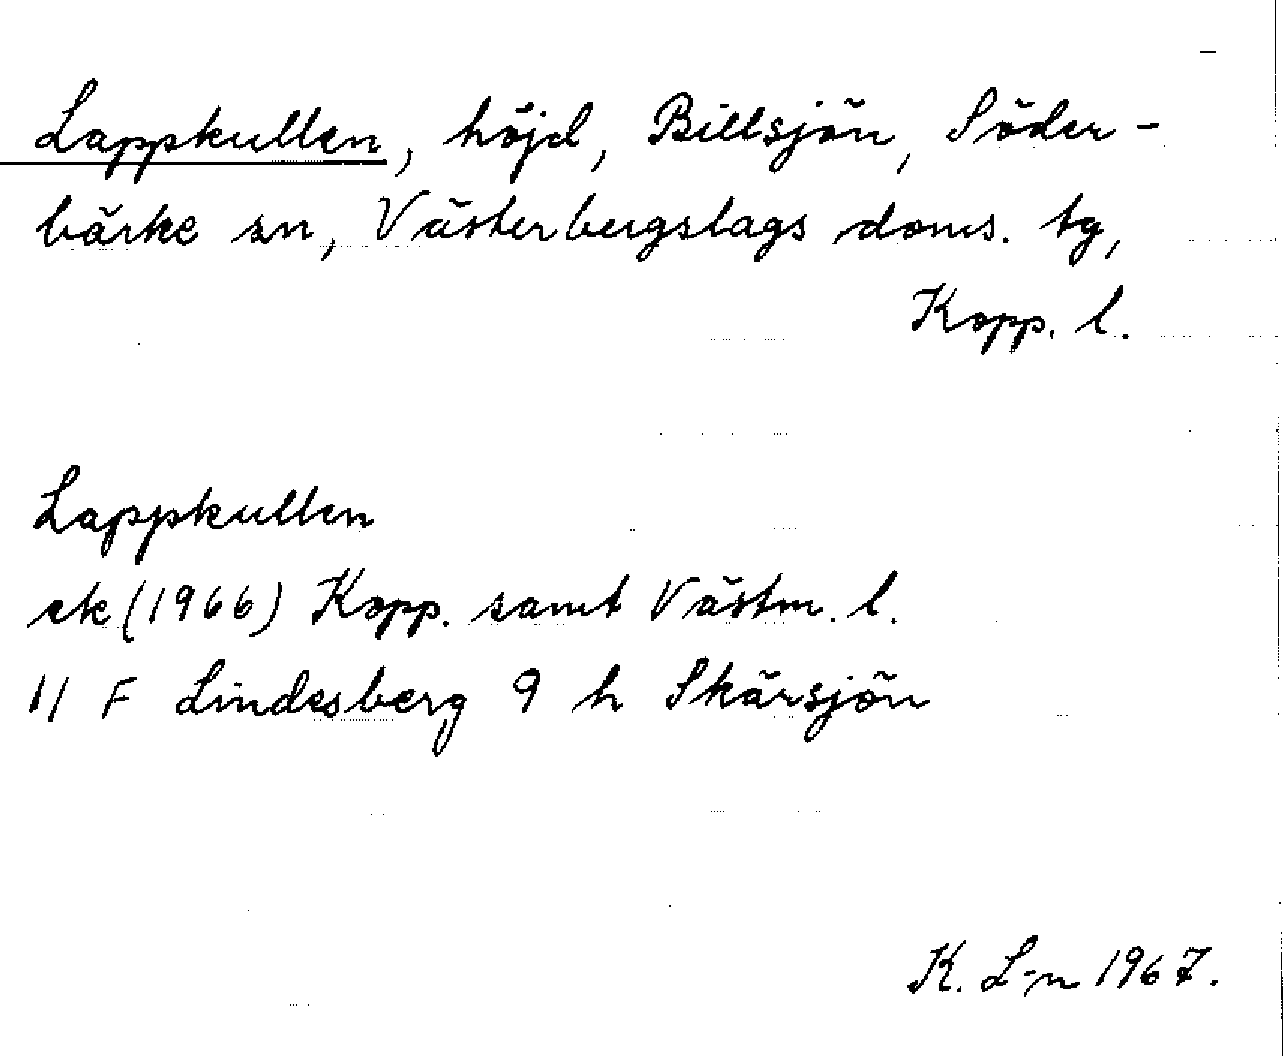 Lappkullen, höjd, Billsjön, Söder-
bärke sn, Västerbergslags doms. tg,
Kopp. l.
Lappkullen
ek (1966) Kopp. samt Västm. l.
11 F Lindesberg 9 h Skärsjön
K. L-n 1967.